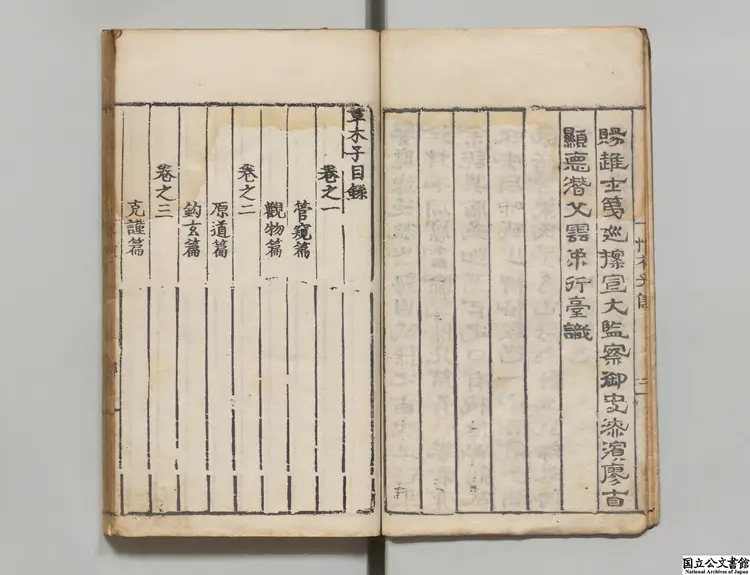 賜進士第巡按宣大監察御史濱廖自
顯悳潛父雲行臺識
草木子目錄
卷之一
管窺篇
觀物篇
卷之二
原道篇
鈎玄篇
卷之三
克謹篇
国立公文書館
National Archives of Japan